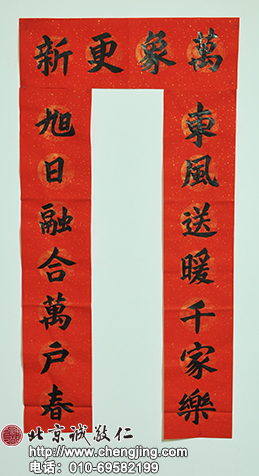 萬象更新
東風送暖千家樂
旭日融合萬戶春
北京誠敬仁
http://www.chengjing.com
电话：010-69582199